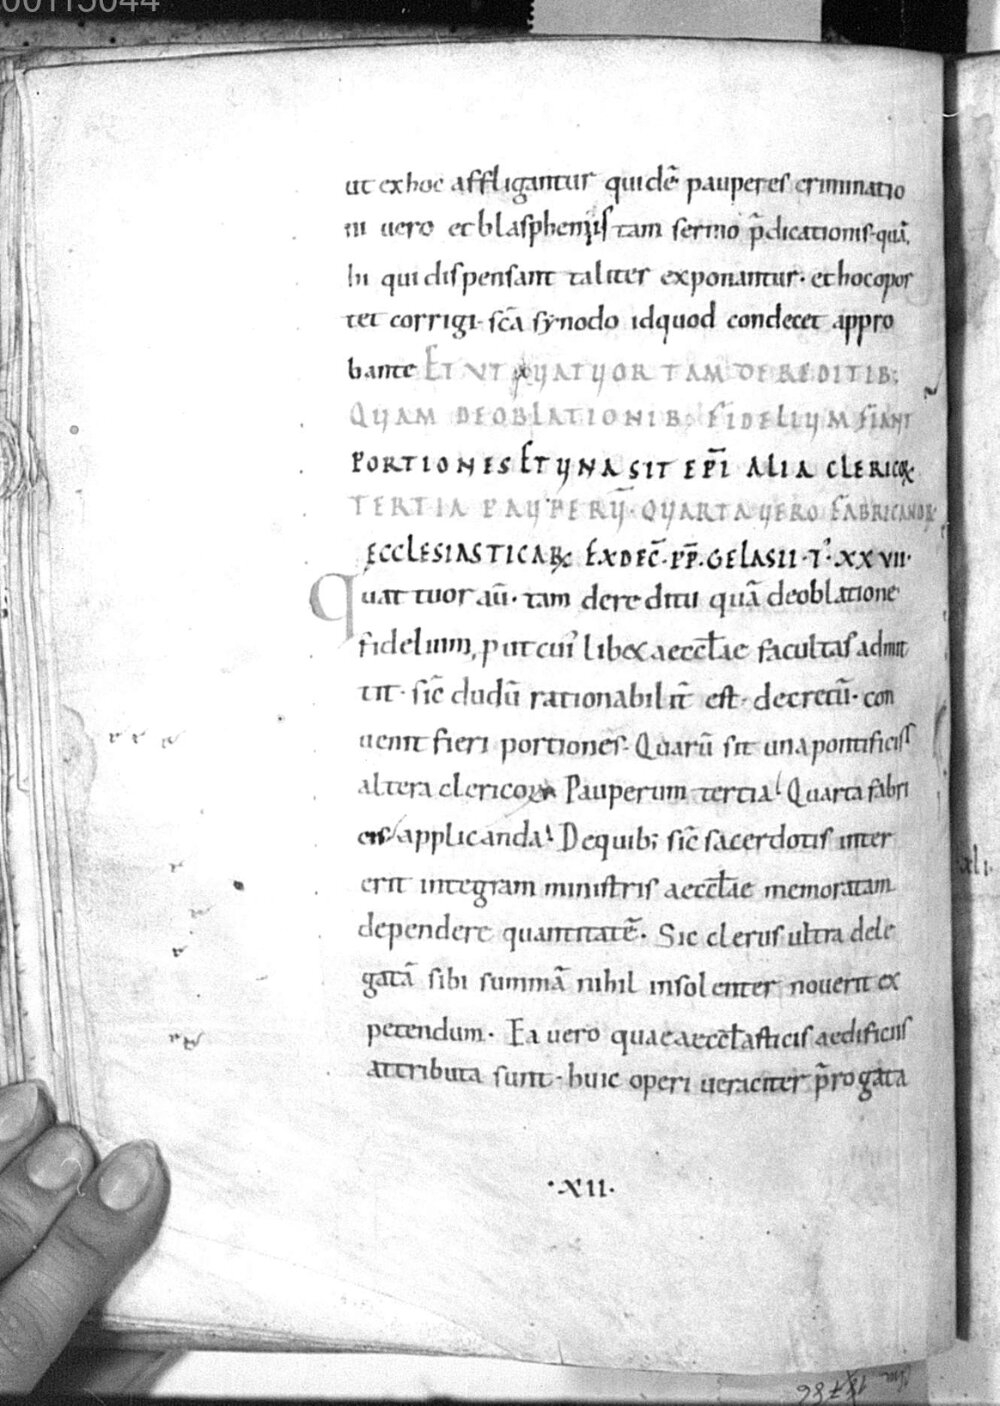 00115044
ut ex hoc affligantur quidẽ pauperes criminatio
ni uero et blasphemiis tam sermo p̃dicationis quã
hi qui dispensant taliter exponantur · et hoc opor
tet corrigi · sc̃a synodo id quod condecet appro
bante ET VT QUATUOR TAM DE REDITIB;
QUAM DE OBLATIONIB; FIDELIUM FIANT
PORTIONES ET UNA SIT EPĪ ALIA CLERICOꝜ
TERTIA PAUPERŪ · QUARTA UERO FABRICANDIS
ECCLESIASTICARꝜ EX DEC̃ · PP̃ · GELASII · T̃ · XXVII ·
Quattuor aũ · tam de reditu quã de oblatione
fidelium, put cui libet aeccl̃ae facultas admit
tit · sic̃ dudũ rationabilit̃ est · decretũ · con
uenit fieri portiones · Quarũ sit una pontificis
altera clericoꝝ Pauperum tertia Quarta fabri
cis applicanda Dequib; sic̃ sacerdotis inter
erit integram ministris aeccl̃ae memoratam
dependere quantitatẽ · Sic clerus ultra dele
gatã sibi summã nihil insolenter nouerit ex
petendum · Ea uero quae aeccl̃asticis aedificiis
attributa sunt · huic operi ueraciter p̃rogata
· XII ·
xli ·